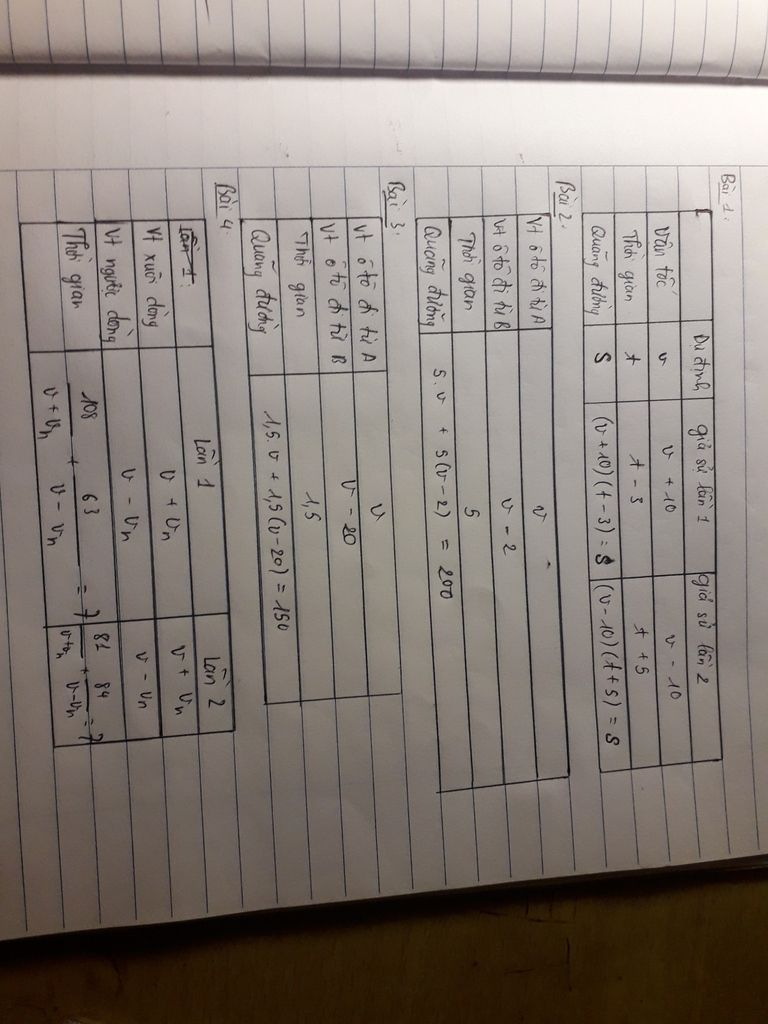 Bài 1:
Dự định giả sử lần 1 giả sử lần 2
Vận tốc v v + 10 v - 10
Thời gian t t - 3 t + 5
Quãng đường S (v+10)(t-3) = S (v-10)(t+5) = S
Bài 2:
Vt ô tô đi từ A v
Vt ô tô đi từ B v - 2
Thời gian 5
Quãng đường 5.v + 5(v-2) = 200
Bài 3:
Vt ô tô đi từ A v
Vt ô tô đi từ B v - 20
Thời gian 1,5
Quãng đường 1,5.v + 1,5(v-20) = 150
Bài 4:
Lần 1 Lần 2
Vt xuôi dòng v + vn v + vn
Vt người dòng v - vn v - vn
Thời gian 108/(v + vn) + 63/(v - vn) = 7 81/(v+vn) + 84/(v-vn) = 7